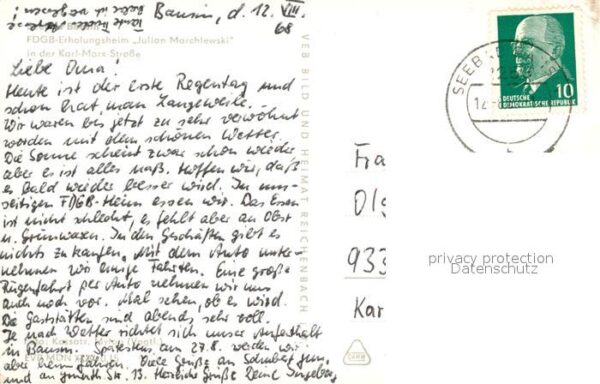 Bansin, d. 12. VIII.
68
FDGB-Erholungsheim „Julian Marchlewski"
in der Karl-Marx-Straße
Liebe Oma!
Heute ist der erste Regentag und
schon hat man Langeweile.
Wir waren bis jetzt zu sehr verwöhnt
worden mit dem schönen Wetter.
Die Sonne scheint zwar schon wieder
aber es ist alles naß. Hoffen wir, daß
es bald wieder besser wird. Im
seitigen FDGB-Heim essen wir. Das Essen
ist nicht schlecht, es fehlt aber an Obst
u. Grünwaren. In den Geschäften gibt es
nichts zu kaufen. Mit dem Auto unter-
nehmen wir einige Fahrten. Eine große
Rügenfahrt per Auto nehmen wir uns
auch noch vor. Mal sehen, ob es wird.
Die Gaststätten sind abends sehr voll.
Je nach Wetter richtet sich unser Aufenthalt
in Bansin. Spätestens am 27.8. werden wir
aber heim fahren. Viele Grüße an Schubert
und an Str. 13. Herzliche Grüße Deine Ingeborg
VEB BILD UND HEIMAT REICHENBACH
SEEBAD
DEUTSCHE
DEMOKRATISCHE REPUBLIK
10
Fra
Ols
933
Kar
privacy protection
Datenschutz